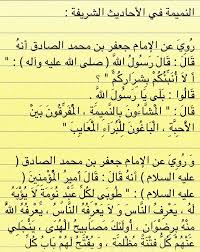 النميمة في الأحاديث الشريفة :
رُوِيَ عن الإمام جعفر بن محمد الصادق أنهُ
قَالَ : قَالَ رَسُولُ اللَّهِ ( صلى الله عليه وآله ) : "
أَ لَا أُنَبِّئُكُمْ بِشِرَارِكُمْ " ؟
قَالُوا : بَلَى يَا رَسُولَ اللَّهِ .
قَالَ : " الْمَشَّاءُونَ بِالنَّمِيمَةِ ، الْمُفَرِّقُونَ بَيْنَ
الْأَحِبَّةِ ، الْبَاغُونَ لِلْبُرَآءِ الْمَعَايِبَ "
وَ رُوِيَ عن الإمام جعفر بن محمد الصادق (
عليه السلام ) أنه قَالَ : قَالَ أَمِيرُ الْمُؤْمِنِينَ (
عليه السلام ) : " طُوبَى لِكُلِّ عَبْدٍ نُوَمَةٍ لَا يُؤْبَهُ
لَهُ ، يَعْرِفُ النَّاسَ وَ لَا يَعْرِفُهُ النَّاسُ ، يَعْرِفُهُ اللَّهُ
مِنْهُ بِرِضْوَانٍ ، أُولَئِكَ مَصَابِيحُ الْهُدَى ، يَنْجَلِي
عَنْهُمْ كُلُّ فِتْنَةٍ مُظْلِمَةٍ ، وَ يُفْتَحُ لَهُمْ بَابُ كُلِّ